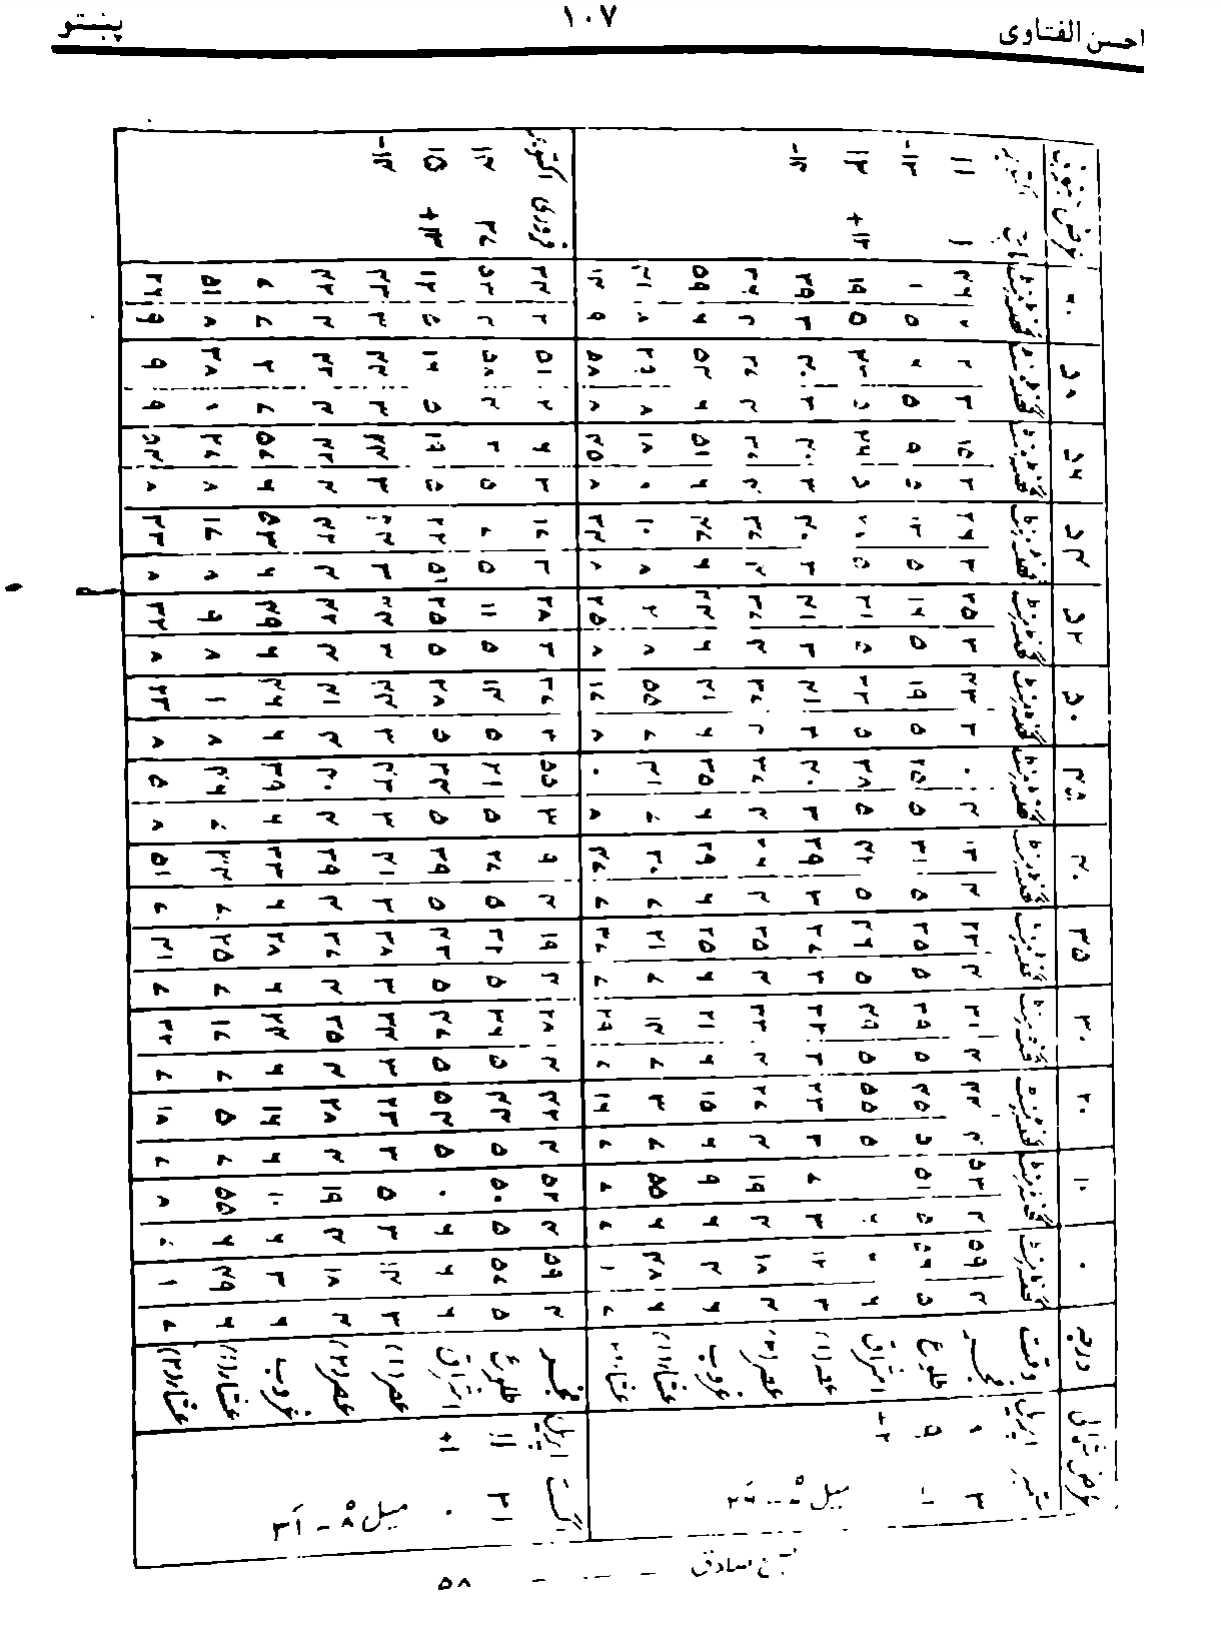 احسن الفتاوی ۱۰۷ پښتو
صبح صادق ۵۸
عرض شمالی درجہ ۰ ۱۰ ۲۰ ۳۰ ۳۵ ۴۰ ۴۵ ۵۰ ۵۲ ۵۴ ۵۶ ۵۸ ۶۰ عرض جنوبی
ستمبر اپریل وقت گھنٹہ منٹ گھنٹہ منٹ گھنٹہ منٹ گھنٹہ منٹ گھنٹہ منٹ گھنٹہ منٹ گھنٹہ منٹ گھنٹہ منٹ گھنٹہ منٹ گھنٹہ منٹ گھنٹہ منٹ گھنٹہ منٹ گھنٹہ منٹ مارچ اکتوبر
۳ ۹ فجر ۴ ۵۹ ۴ ۵۳ ۴ ۴۳ ۴ ۳۱ ۴ ۲۳ ۴ ۱۳ ۴ ۰ ۳ ۴۳ ۳ ۳۵ ۳ ۲۶ ۳ ۱۵ ۳ ۲ ۲ ۴۶ ۱ ۱۱
-۱ ۹ طلوع ۵ ۵۶ ۵ ۵۱ ۵ ۴۵ ۵ ۳۹ ۵ ۳۵ ۵ ۳۱ ۵ ۲۵ ۵ ۱۹ ۵ ۱۶ ۵ ۱۳ ۵ ۹ ۵ ۶ ۵ ۱ -۱۳
+۲ اشراق ۶ ۶ ۶ ۵ ۵۵ ۵ ۴۹ ۵ ۴۶ ۵ ۴۲ ۵ ۳۸ ۵ ۳۳ ۵ ۳۱ ۵ ۵ ۲۶ ۵ ۲۳ ۵ ۱۹ +۱۳ ۱۲
عصر(۱) ۳ ۱۲ ۳ ۷ ۳ ۲۳ ۳ ۳۳ ۳ ۳۷ ۳ ۳۹ ۳ ۴۰ ۳ ۴۱ ۳ ۴۱ ۳ ۴۰ ۳ ۴۰ ۳ ۴۰ ۳ ۳۹ -۱۴
میل ۵ - ۲۷ عصر(۲) ۴ ۱۸ ۴ ۱۹ ۴ ۲۷ ۴ ۳۳ ۴ ۳۵ ۴ ۳۶ ۴ ۳۷ ۴ ۳۷ ۴ ۳۷ ۴ ۳۷ ۴ ۳۷ ۴ ۳۷ ۴ ۳۷
غروب ۶ ۳ ۶ ۹ ۶ ۱۵ ۶ ۲۱ ۶ ۲۵ ۶ ۲۹ ۶ ۳۵ ۶ ۴۱ ۶ ۴۴ ۶ ۴۷ ۶ ۵۱ ۶ ۵۴ ۶ ۵۹
عشاء(۱) ۶ ۴۸ ۶ ۵۵ ۷ ۳ ۷ ۱۴ ۷ ۲۱ ۷ ۳۰ ۷ ۴۱ ۷ ۵۵ ۸ ۲ ۸ ۱۰ ۸ ۱۸ ۸ ۲۹ ۸ ۴۱
عشاء(۲) ۷ ۱ ۷ ۷ ۷ ۱۶ ۷ ۲۹ ۷ ۳۷ ۷ ۴۷ ۸ ۰ ۸ ۱۶ ۸ ۲۵ ۸ ۳۴ ۸ ۴۵ ۸ ۵۸ ۹ ۱۳
اگست اپریل فجر ۴ ۵۹ ۴ ۵۲ ۴ ۴۲ ۴ ۲۸ ۴ ۱۹ ۴ ۹ ۳ ۵۵ ۳ ۳۷ ۳ ۲۸ ۳ ۱۷ ۳ ۶ ۲ ۵۱ ۲ ۳۳ فروری اکتوبر
۳۱ ۱۱ طلوع ۵ ۵۷ ۵ ۵۰ ۵ ۴۳ ۵ ۳۶ ۵ ۳۲ ۵ ۲۷ ۵ ۲۱ ۵ ۱۴ ۵ ۱۱ ۵ ۷ ۵ ۳ ۴ ۵۸ ۴ ۵۳ ۲۷ ۱۴
۰ +۱ اشراق ۶ ۶ ۶ ۰ ۵ ۵۳ ۵ ۴۷ ۵ ۴۳ ۵ ۳۹ ۵ ۳۴ ۵ ۲۸ ۵ ۲۵ ۵ ۲۲ ۵ ۱۹ ۵ ۱۶ ۵ ۱۲ +۱۳ ۱۵
عصر(۱) ۳ ۱۲ ۳ ۵ ۳ ۲۳ ۳ ۳۴ ۳ ۳۸ ۳ ۴۱ ۳ ۴۳ ۳ ۴۴ ۳ ۴۴ ۳ ۴۴ ۳ ۴۴ ۳ ۴۴ ۳ ۴۳ -۱۴
میل ۸ - ۳۱ عصر(۲) ۴ ۱۸ ۴ ۱۹ ۴ ۲۸ ۴ ۳۵ ۴ ۳۷ ۴ ۳۹ ۴ ۴۰ ۴ ۴۱ ۴ ۴۲ ۴ ۴۲ ۴ ۴۳ ۴ ۴۳ ۴ ۴۳
غروب ۶ ۳ ۶ ۱۰ ۶ ۱۷ ۶ ۲۴ ۶ ۲۸ ۶ ۳۳ ۶ ۳۹ ۶ ۴۶ ۶ ۴۹ ۶ ۵۳ ۶ ۵۷ ۷ ۲ ۷ ۷
عشاء(۱) ۶ ۴۹ ۶ ۵۵ ۷ ۵ ۷ ۱۷ ۷ ۲۵ ۷ ۳۴ ۷ ۴۶ ۸ ۱ ۸ ۹ ۸ ۱۷ ۸ ۲۷ ۸ ۳۸ ۸ ۵۱
عشاء(۲) ۷ ۱ ۷ ۸ ۷ ۱۸ ۷ ۳۲ ۷ ۴۱ ۷ ۵۱ ۸ ۵ ۸ ۲۳ ۸ ۳۲ ۸ ۴۳ ۸ ۵۳ ۹ ۹ ۹ ۲۶